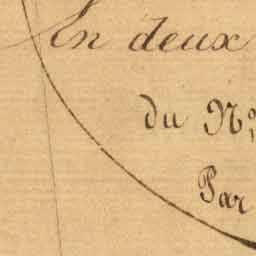 En deux
du No
Par